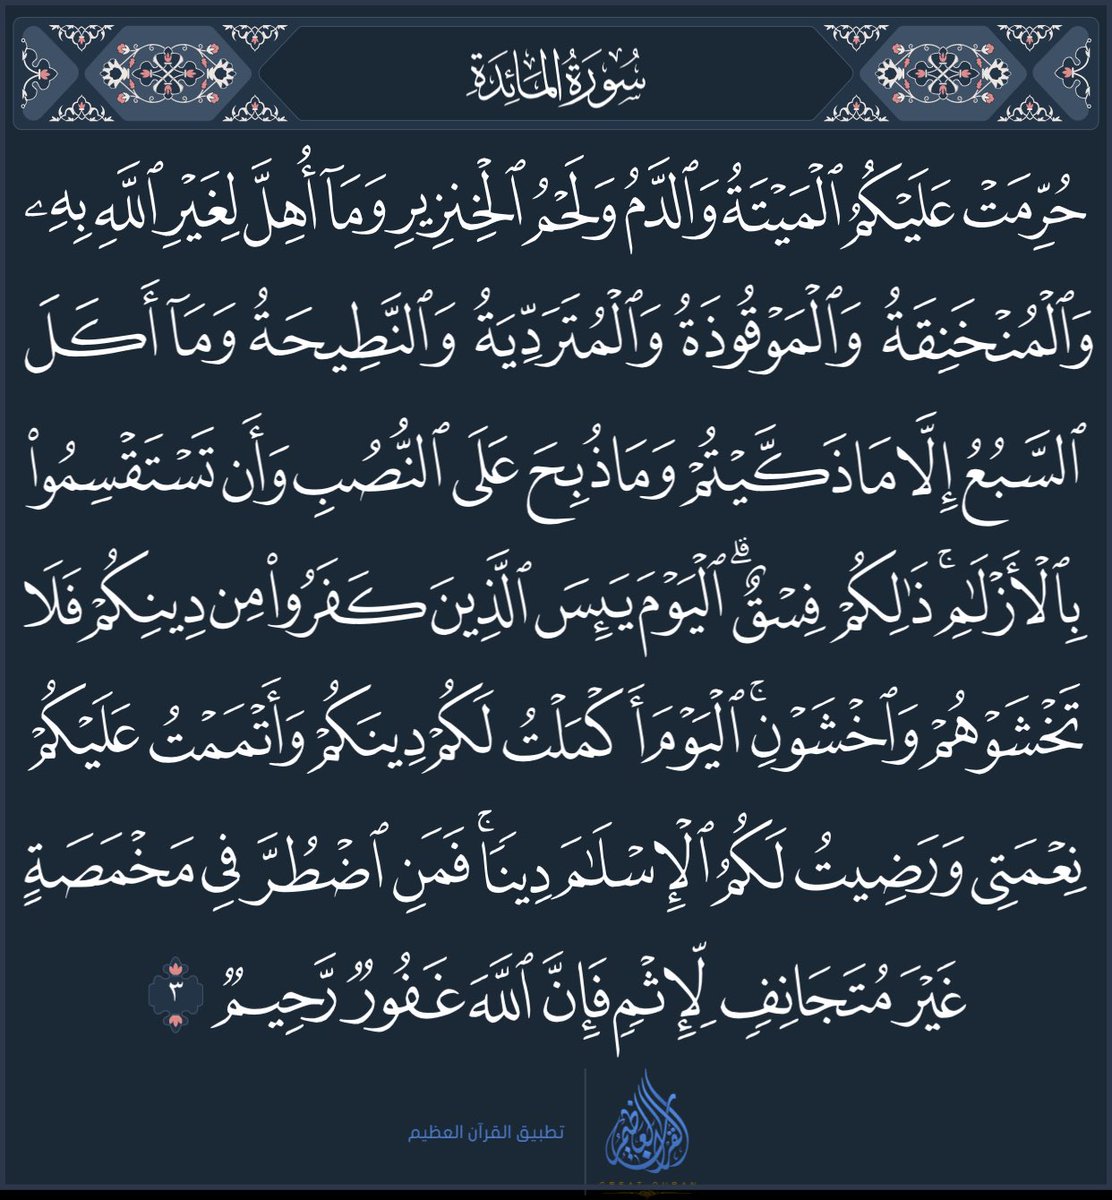 سُورَةُ المَائِدَة
حُرِّمَتْ عَلَيْكُمُ ٱلْمَيْتَةُ وَٱلدَّمُ وَلَحْمُ ٱلْخِنزِيرِ وَمَآ أُهِلَّ لِغَيْرِ ٱللَّهِ بِهِۦ
وَٱلْمُنْخَنِقَةُ وَٱلْمَوْقُوذَةُ وَٱلْمُتَرَدِّيَةُ وَٱلنَّطِيحَةُ وَمَآ أَكَلَ
ٱلسَّبُعُ إِلَّا مَا ذَكَّيْتُمْ وَمَا ذُبِحَ عَلَى ٱلنُّصُبِ وَأَن تَسْتَقْسِمُوا۟
بِٱلْأَزْلَٰمِ ۚ ذَٰلِكُمْ فِسْقٌ ۗ ٱلْيَوْمَ يَئِسَ ٱلَّذِينَ كَفَرُوا۟ مِن دِينِكُمْ فَلَا
تَخْشَوْهُمْ وَٱخْشَوْنِ ۚ ٱلْيَوْمَ أَكْمَلْتُ لَكُمْ دِينَكُمْ وَأَتْمَمْتُ عَلَيْكُمْ
نِعْمَتِى وَرَضِيتُ لَكُمُ ٱلْإِسْلَٰمَ دِينًا ۚ فَمَنِ ٱضْطُرَّ فِى مَخْمَصَةٍ
غَيْرَ مُتَجَانِفٍ لِّإِثْمٍ فَإِنَّ ٱللَّهَ غَفُورٌ رَّحِيمٌ ٣
تطبيق القرآن العظيم
القرآن العظيم
GREAT QURAN